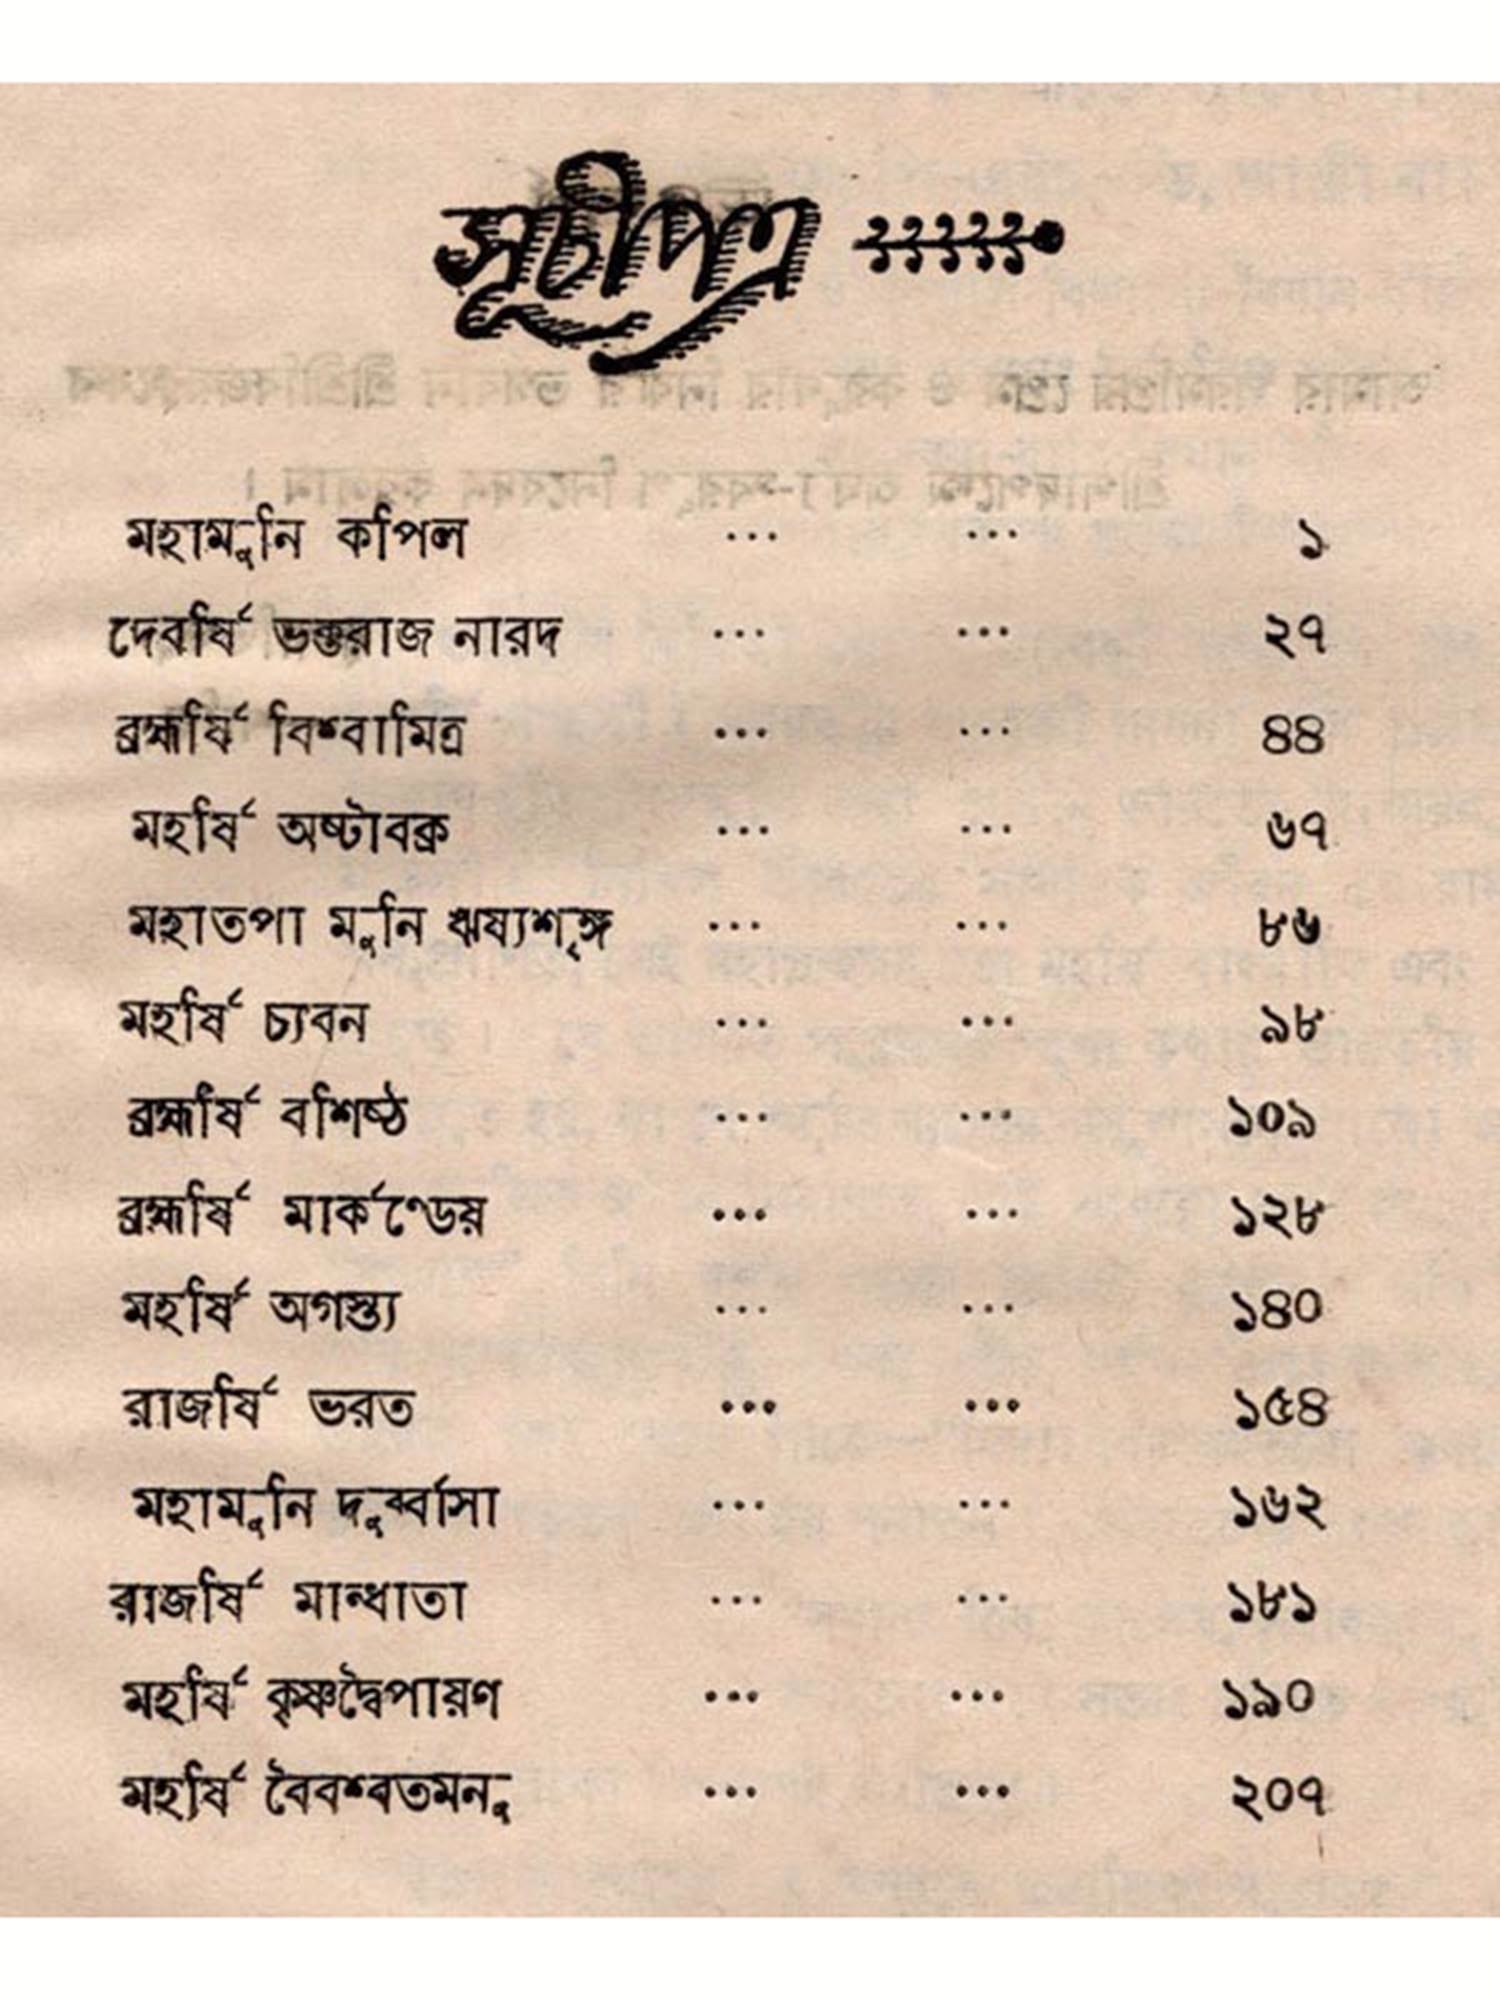 সূচীপত্র
মহামুনি কপিল ... ... ১
দেবর্ষি ভক্তরাজ নারদ ... ... ২৭
ব্রহ্মর্ষি বিশ্বামিত্র ... ... ৪৪
মহর্ষি অষ্টাবক্র ... ... ৬৭
মহাতপা মুনি ঋষ্যশৃঙ্গ ... ... ৮৬
মহর্ষি চ্যবন ... ... ৯৮
ব্রহ্মর্ষি বশিষ্ঠ ... ... ১০৯
ব্রহ্মর্ষি মার্কণ্ডেয় ... ... ১২৮
মহর্ষি অগস্ত্য ... ... ১৪০
রাজর্ষি ভরত ... ... ১৫৪
মহামুনি দুর্ব্বাসা ... ... ১৬২
রাজর্ষি মান্ধাতা ... ... ১৮১
মহর্ষি কৃষ্ণদ্বৈপায়ণ ... ... ১৯০
মহর্ষি বৈবশ্বতমনু ... ... ২০৭